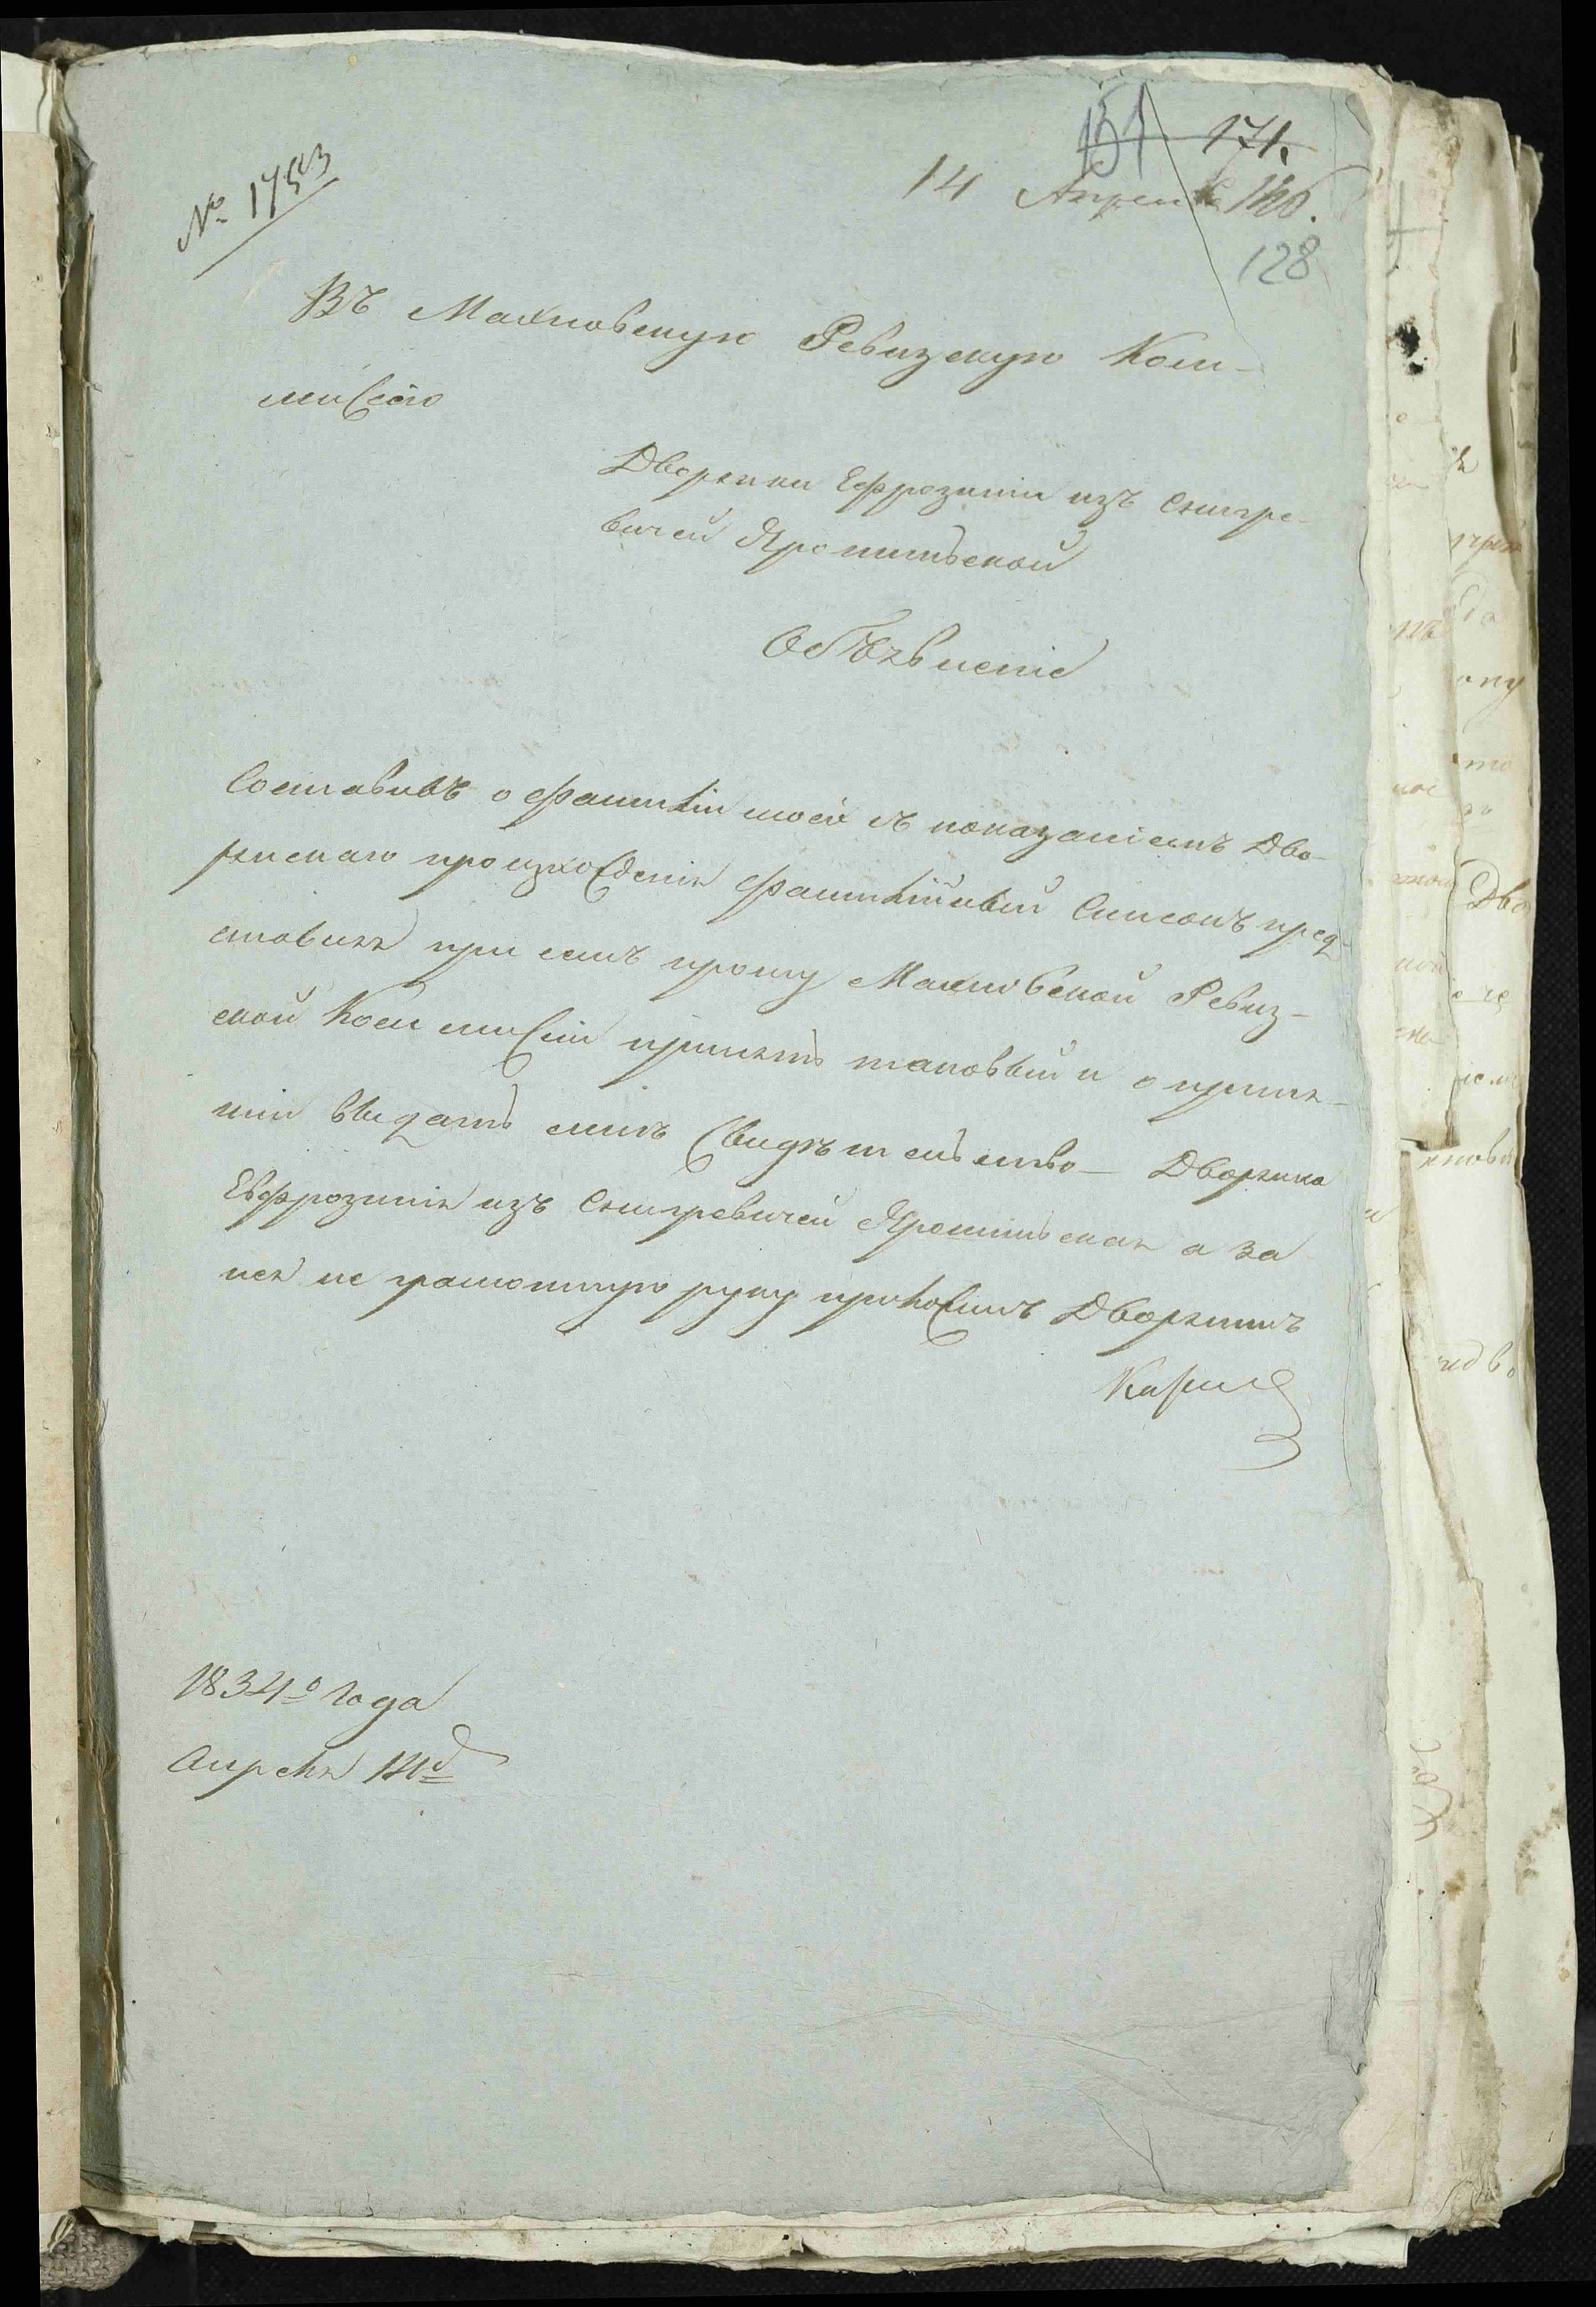 151 171.
№ 1753
14 Апреля
128
Въ Махновскую Ревизскую Ком-
миссію
Дворянки Ефрозиніи изъ Снигре-
вичей Яромпольской
Объявленіе
Составивъ о фамиліи моей съ показаніемъ Дво-
рянскаго произхожденія фамилійный Списокъ пред-
ставляя при семъ прошу Махновской Ревиз-
ской Коммиссіи принять таковый и о приня-
тіи выдать мнѣ Свидѣтельство — Дворянка
Евфрозинія изъ Снигревичей а за
нея не грамотную руку приложилъ Дворянинъ
1834го года
Апреля 14 д